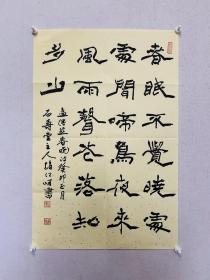 春眠不覺曉處
處聞啼鳥夜來
風雨聲花落知
多少
孟浩然春曉詩癸卯正月
石壽雲主人書